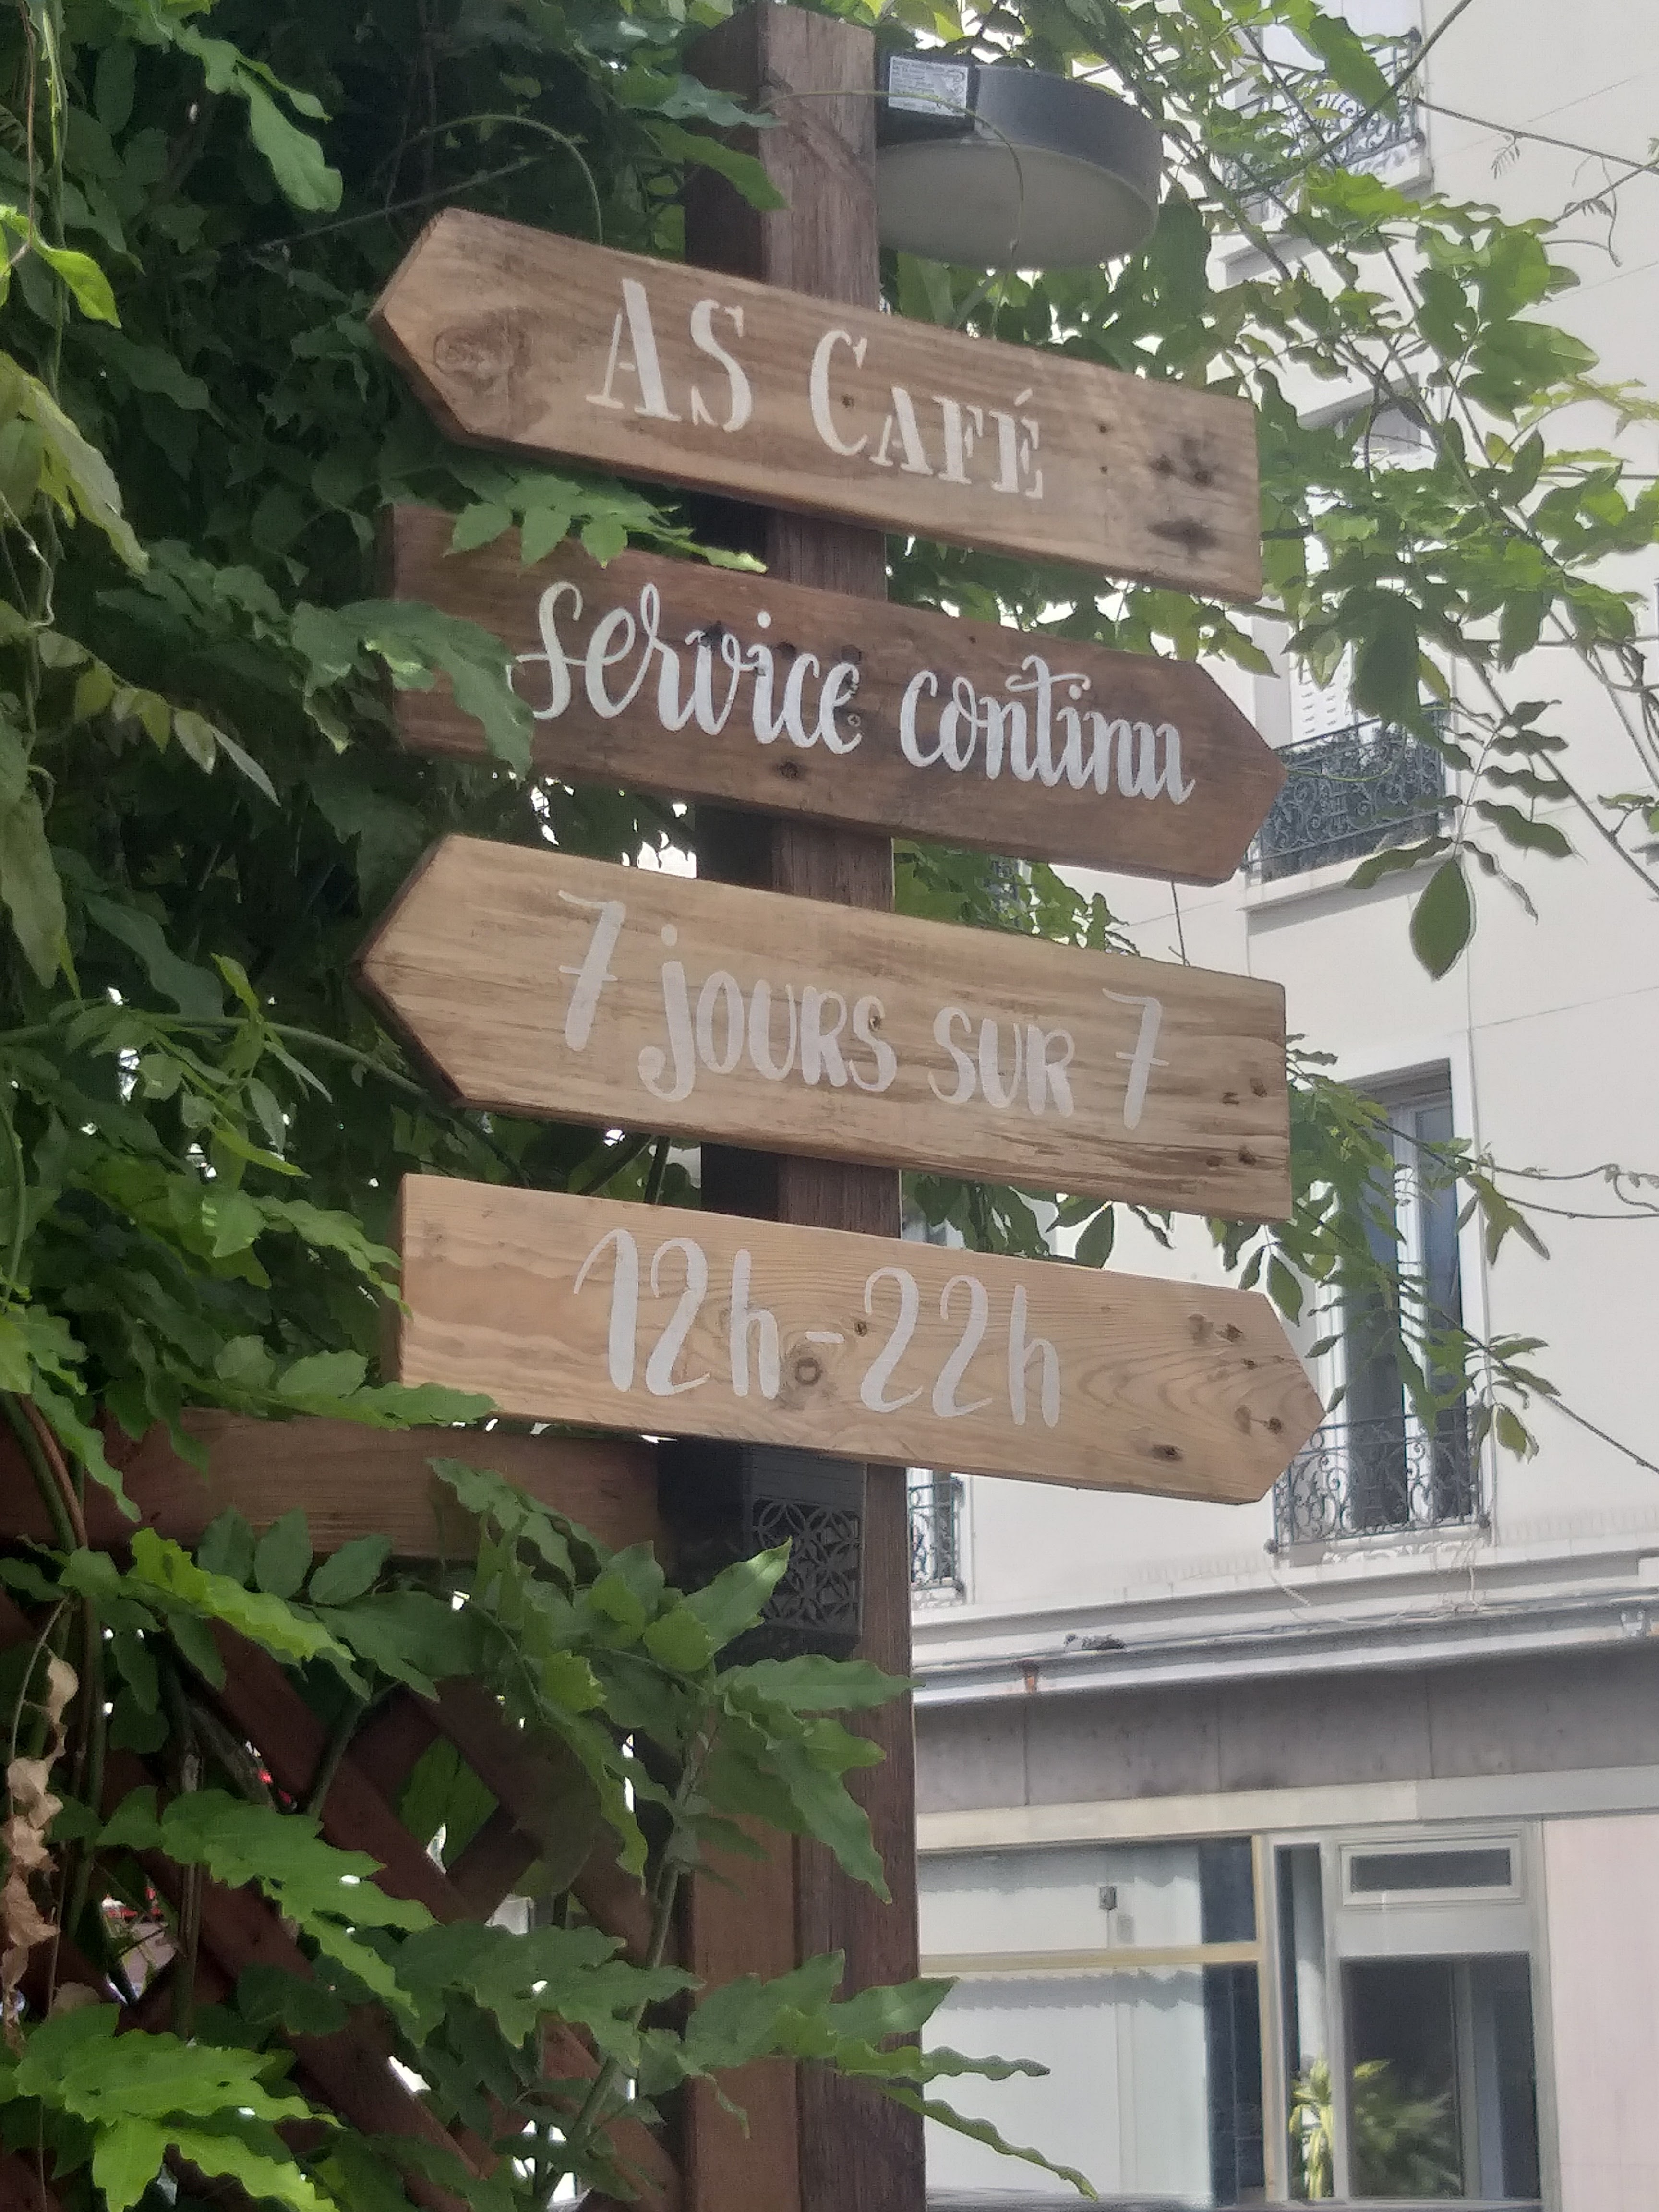 AS CAFÉ
Service continu
7 jOURS SUR 7
12h-22h